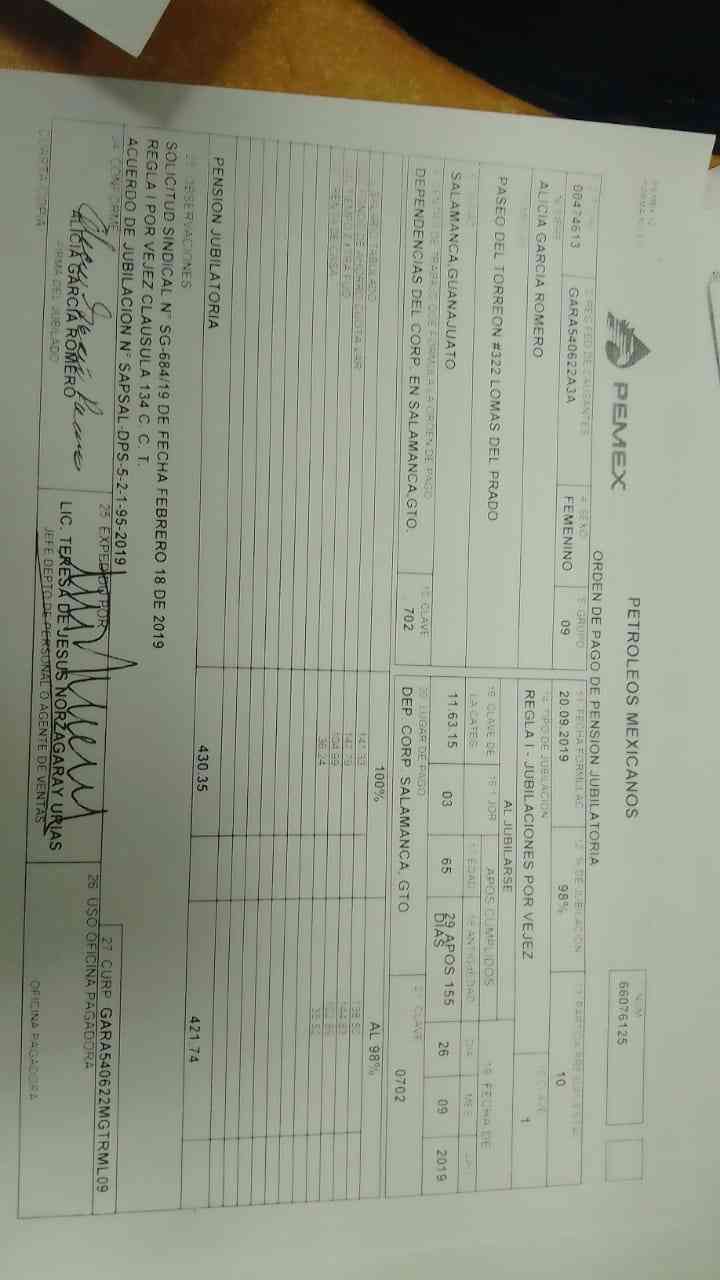 PEMEX
PETROLEOS MEXICANOS
ORDEN DE PAGO DE PENSION JUBILATORIA
NUM
66076125
4 SEXO
5 GRUPO
12 % DE JUBILACION
00474613 GARA540622A3A FEMENINO 09 20 09 2019 98% 10
TIPO DE JUBILACION
ALICIA GARCIA ROMERO
REGLA I - JUBILACIONES POR VEJEZ 1
AL JUBILARSE
PASEO DEL TORREON #322 LOMAS DEL PRADO
CLAVE DE
APOS CUMPLIDOS
19 FECHA DE
LA CATEG
EDAD
ANTIGUEDAD
DIA
MES
SALAMANCA,GUANAJUATO
11.63.15 03 65 29 APOS 155 DIAS 26 09 2019
CLAVE
20 LUGAR DE PAGO
CLAVE
DEPENDENCIAS DEL CORP. EN SALAMANCA,GTO. 702
DEP. CORP. SALAMANCA, GTO 0702
100% AL 98%
PENSION JUBILATORIA 430.35 421.74
OBSERVACIONES
SOLICITUD SINDICAL N° SG-684/19 DE FECHA FEBRERO 18 DE 2019
REGLA I POR VEJEZ CLAUSULA 134 C. C. T.
ACUERDO DE JUBILACION N° SAPSAL-DPS-5-2-1-95-2019
27 CURP GARA540622MGTRML09
CONFORME
25 EXPEDIDO POR
26 USO OFICINA PAGADORA
ALICIA GARCIA ROMERO
LIC. TERESA DE JESUS NORZAGARAY URIAS
FIRMA DEL JUBILADO
JEFE DEPTO DE PERSONAL O AGENTE DE VENTAS
OFICINA PAGADORA
CUARTA COPIA